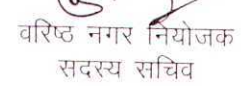 वरिष्ठ नगर नियोजक
सदस्य सचिव